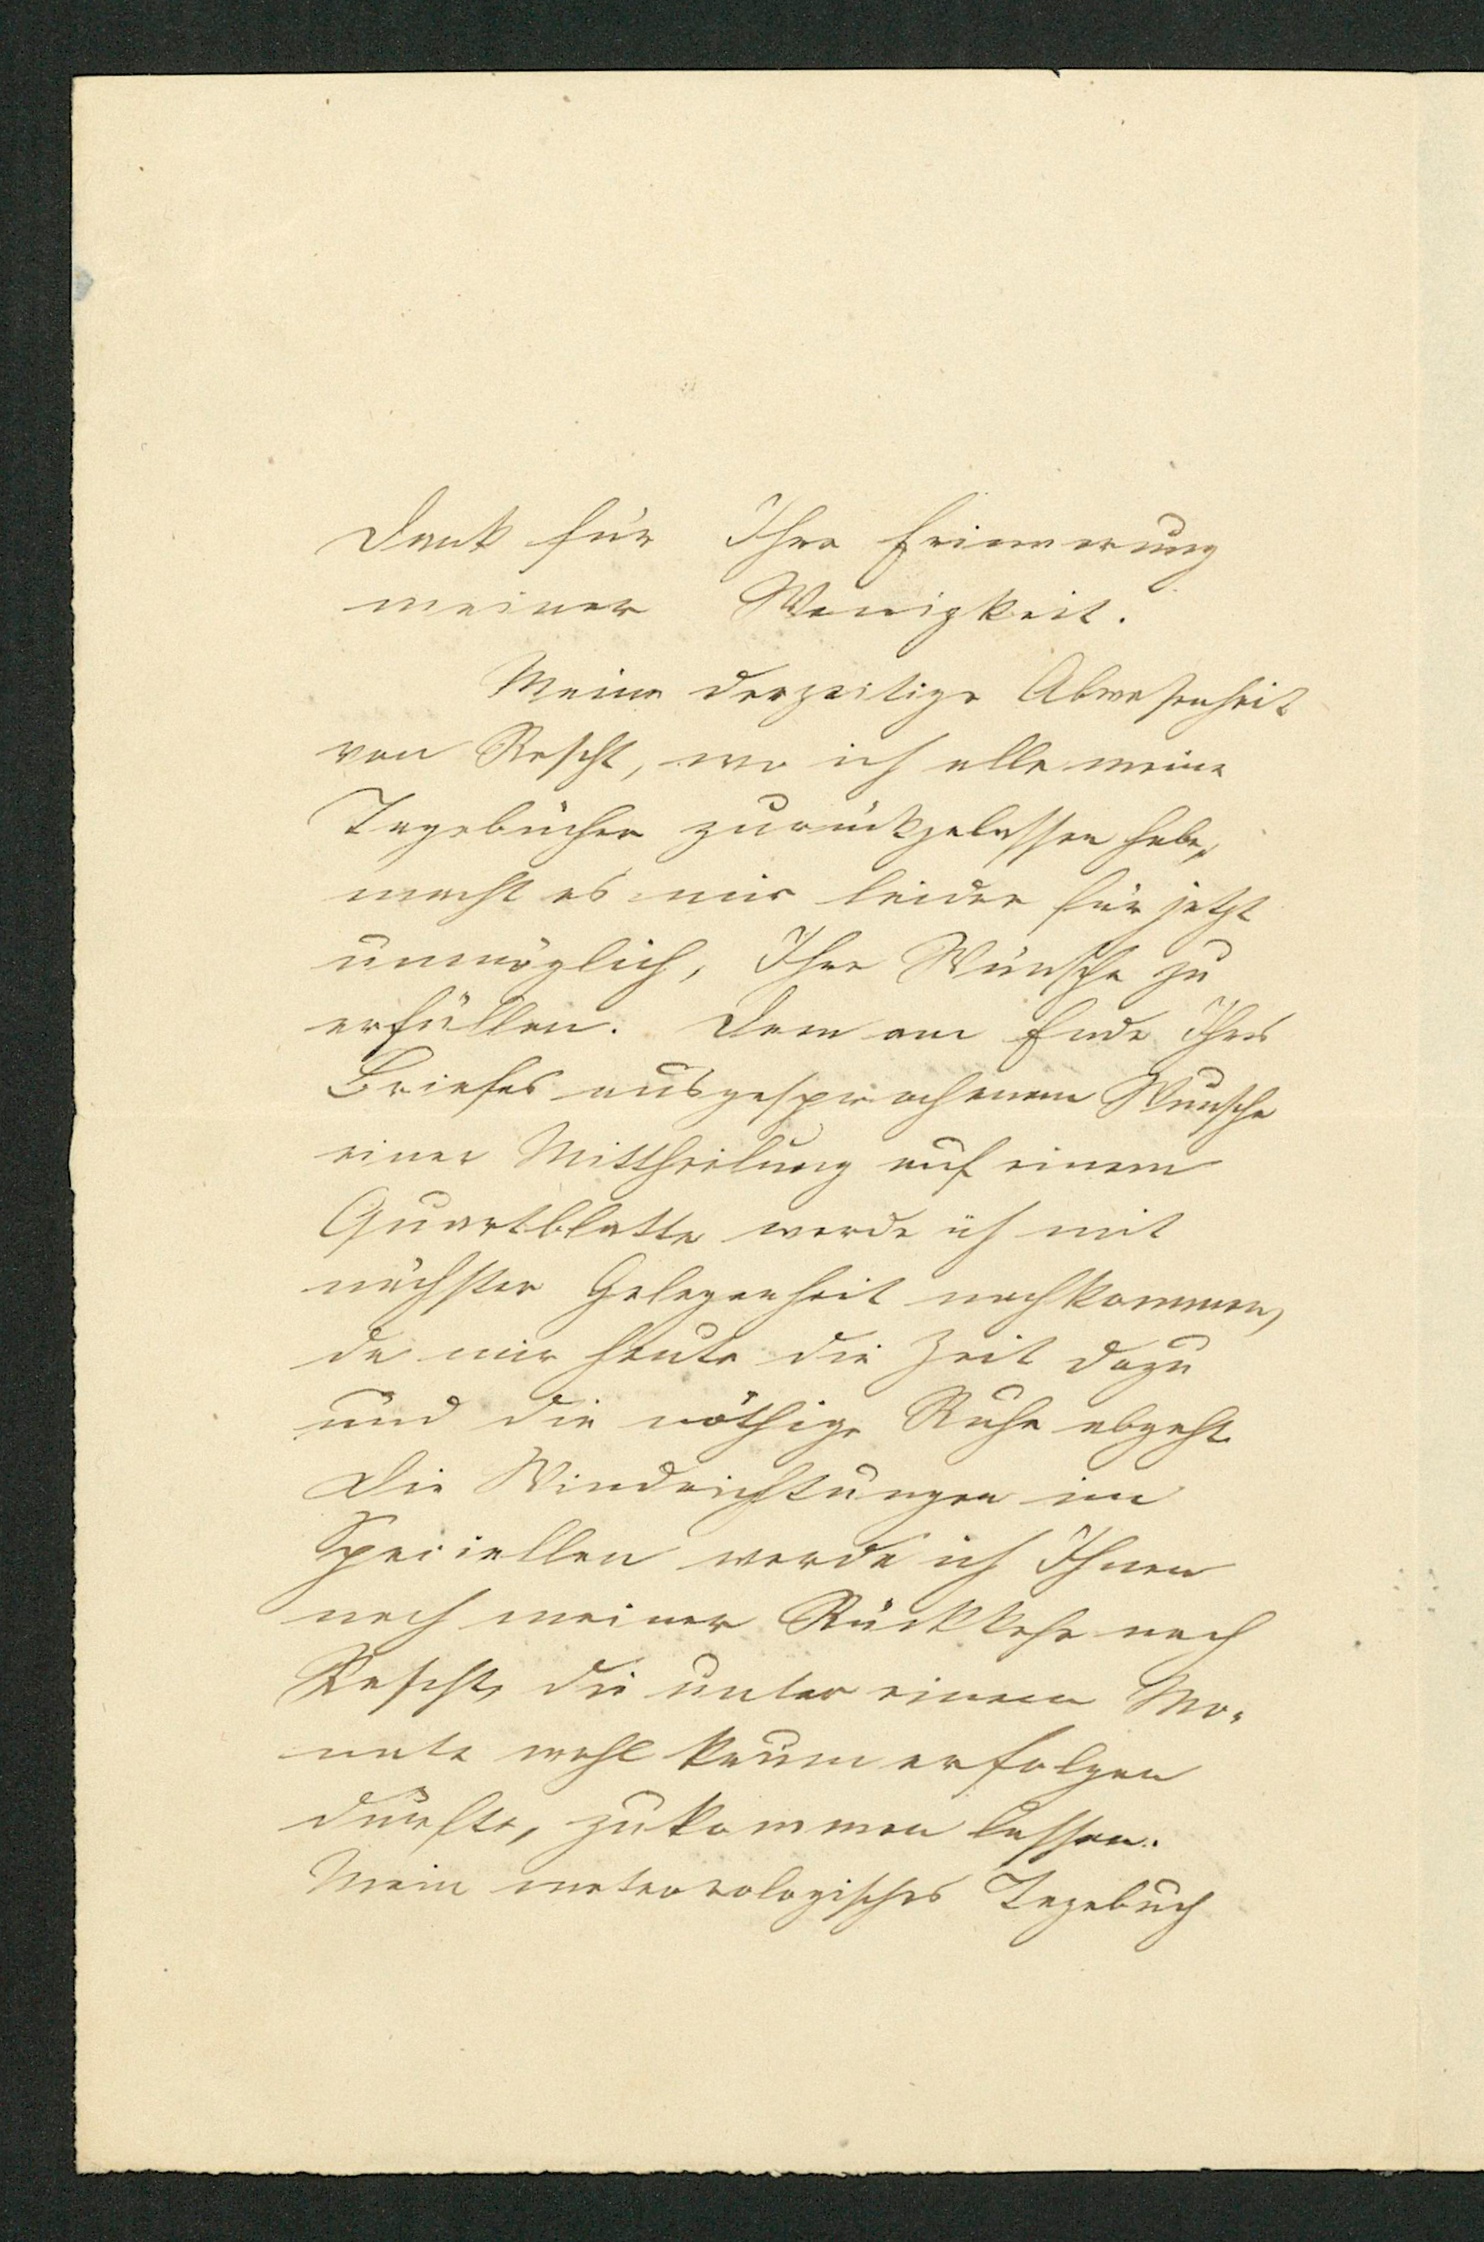 Dank für Ihre Erinnerung
meiner Wenigkeit.
Meine derzeitige Abwesenheit
von Rescht, wo ich alle meine
Tagebücher zurückgelassen habe,
macht es mir leider für jetzt
unmöglich, Ihre Wünsche zu
erfüllen. Dem am Ende Ihres
Briefes ausgesprochenem Wunsche
einer Mittheilung auf einem
Quartblatte werde ich mit
nächster Gelegenheit nachkommen,
da mir heute die Zeit dazu
und die nöthige Ruhe abgeht.
Die Windrichtungen im
Speciellen werde ich Ihnen
nach meiner Rückkehr nach
Rescht, die unter einem Mo-
nate wohl kaum erfolgen
dürfte, zukommen lassen.
Mein meteorologisches Tagebuch